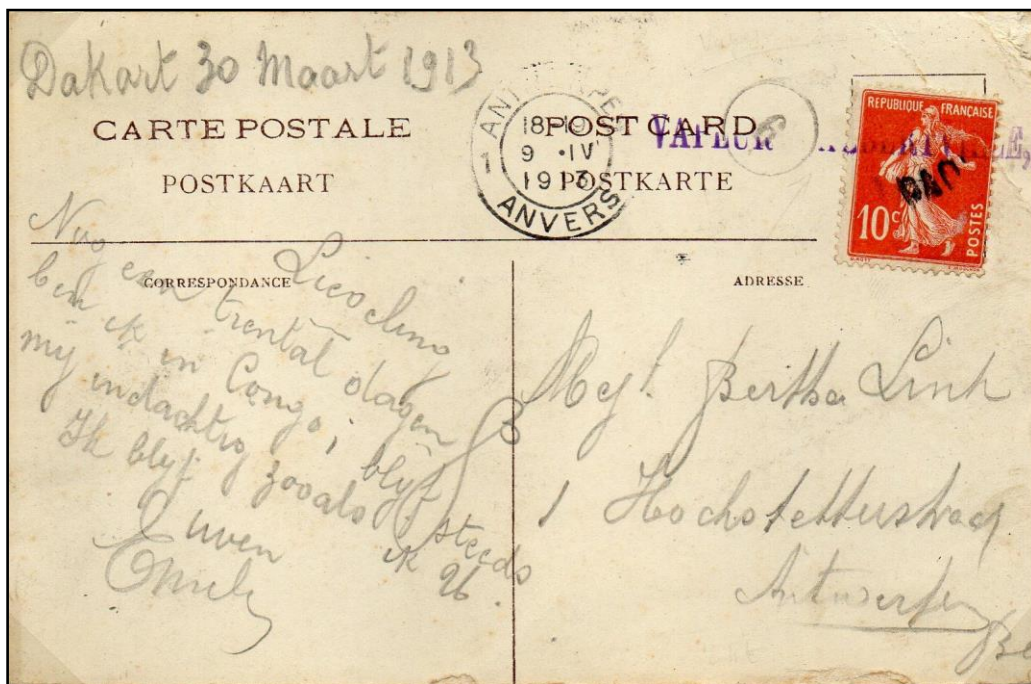 Dakart 30 Maart 1913
CARTE POSTALE
POST CARD
POSTKAART
POSTKARTE
1 ANVERS
18-19
9 · IV
1913
VAPEUR
6
REPUBLIQUE FRANÇAISE
10c
POSTES
PAQ
CORRESPONDANCE
ADRESSE
Lieveling
Nog een trental dagen
ben ik in Congo; blyf
my indachtig zooals ik
Ik blyf steeds
uwen
Emile
Mej. Bertha Link
1 Hochstetterstraat
Antwerpen